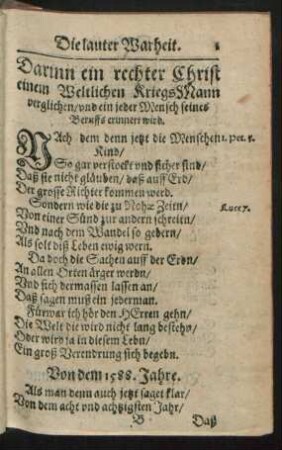 Die lauter Warheit. 1
Darinn ein rechter Christ
einem Weltlichen KriegsMann
verglichen/ vnd ein jeder Mensch seines
Beruffs erinnert wird.
NAch dem denn jetzt die Menschen 1. Pet. 5.
Kind/
So gar verstockt vnd sicher sind/
Daß sie nicht gläuben/ daß auff Erd/
Der grosse Richter kommen werd.
Sondern wie die zu Nohæ Zeitn/ Luce 7.
Von einer Sünd zur andern schreitn/
Vnd nach dem Wandel so gebern/
Als solt diß Leben ewig wern.
Da doch die Sachen auff der Erdn/
An allen Orten ärger werdn/
Vnd sich dermassen lassen an/
Daß sagen muß ein jederman.
Fürwar ich hör den HErren gehn/
Die Welt die wird nicht lang bestehn/
Oder wird ja in diesem Lebn/
Ein groß Verendrung sich begebn.
Von dem 1588. Jahre.
Als man denn auch jetzt saget klar/
Von dem acht vnd achtzigsten Jahr/
B Daß